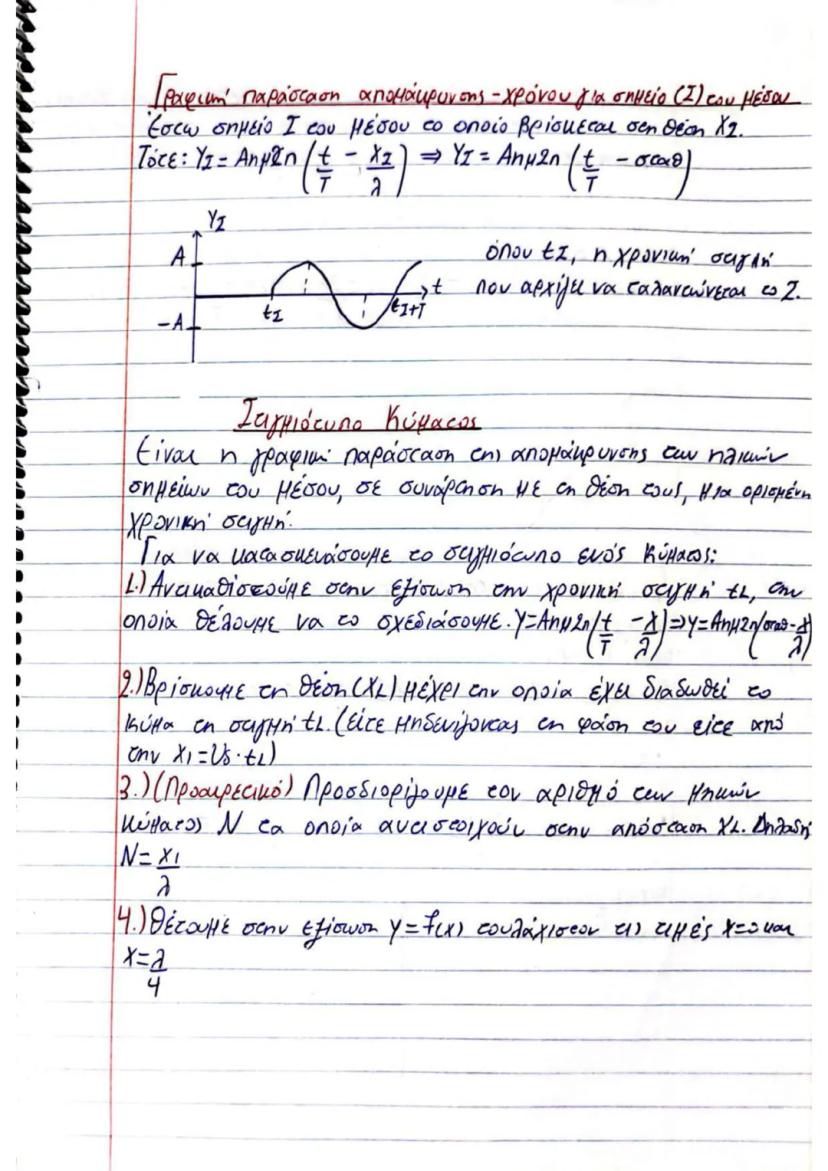 Γραφική παράσταση απομάκρυνσης-χρόνου για σημείο (Σ) του μέσου
Έστω σημείο Σ του μέσου το οποίο βρίσκεται στη θέση XΣ.
Τότε: YΣ = Αημ2π(t/T - XΣ/λ) ⇒ YΣ = Αημ2π(t/T - σταθ)
YΣ
A
όπου tΣ, η χρονική στιγμή
t
που αρχίζει να ταλαντώνεται το Σ.
tΣ
tΣ+T
-A
Στιγμιότυπο Κύματος
Είναι η γραφική παράσταση της απομάκρυνσης των υλικών
σημείων του μέσου, σε συνάρτηση με τη θέση τους, μια ορισμένη
χρονική στιγμή.
Για να κατασκευάσουμε το στιγμιότυπο ενός κύματος:
1.) Αντικαθιστούμε στην εξίσωση την χρονική στιγμή t1, την
οποία θέλουμε να το σχεδιάσουμε. Y=Αημ2π(t/T - x/λ) ⇒ Y=Αημ2π(σταθ- x/λ)
2.) Βρίσκουμε τη θέση (X1) μέχρι την οποία έχει διαδωθεί το
κύμα τη στιγμή t1. (είτε μηδενίζοντας τη φάση του είτε από
την X1=Uδ·t1)
3.) (Προαιρετικό) Προσδιορίζουμε τον αριθμό των μηκών
κύματος N τα οποία αντιστοιχούν στην απόσταση X1. Δηλαδή
N= X1/λ
4.) Θέτουμε στην εξίσωση y=f(x) τουλάχιστον τις τιμές X=0 και
X=λ/4